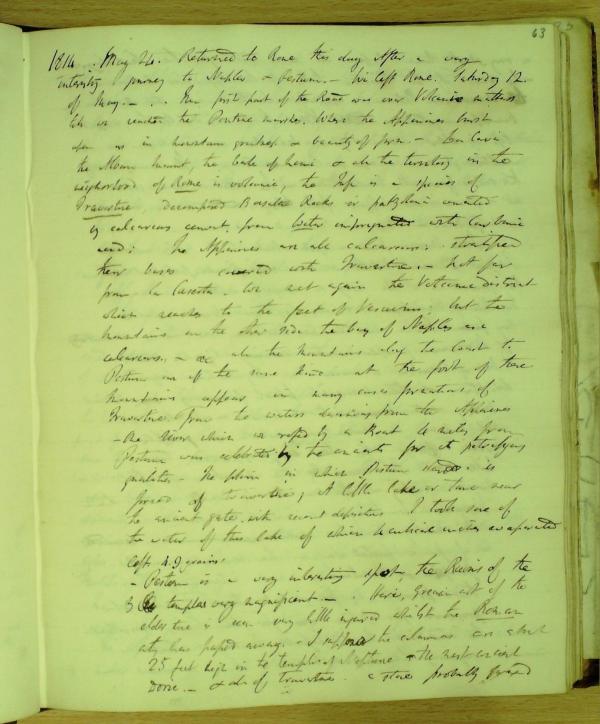 63
1814. May 24. Returned to Rome this day after a very
interesting journey to Naples & Pestum. — We left Rome. Saturday 12
of May. — . . The first part of the Road was over Volcanic matters
till we reached the Pontine marshes. Where the Appenines burst
upon us in mountain grandeur & beauty of form —
the Albano mount, the lake of Nemi & all the territory in the
neighborhood of Rome is volcanic, the Tufa is a species of
Travertine decomposed Basaltic Rocks or
by calcareous cement, from Water impregnated with Carbonic
acid: The Appenines are all calcareous: stratified
their bases covered with Travertine. — Not far
from la Caserta. We met again the Volcanic District
which reaches to the foot of Vesuvius: but the
mountains on the other side the bay of Naples are
calcareous. — all the mountains along the Coast to
Pestum are of the same kind at the foot of these
mountains appear in many cases formations of
Travertine from the waters descending from the Appenines
— The River which we passed by a Boat 4 miles from
Pestum was celebrated by the ancients for its petrifying
qualities — The plain in which Pestum stands is
formed of travertine; A little lake or near
the ancient gate with recent depositions I took some of
the water of this lake of which cubical inches evaporated
left 4.9 grains
— Pestum is a very interesting spot, the Ruins of the
3 temples very magnificent — . Here, Grecian art of the
elder time is seen very little injured whilst the Roman
city has passed away. — I suppose the columns are about
25 feet high in the temple of Neptune — The most ancient
Doric. — & all of travertine. a stone probably formed